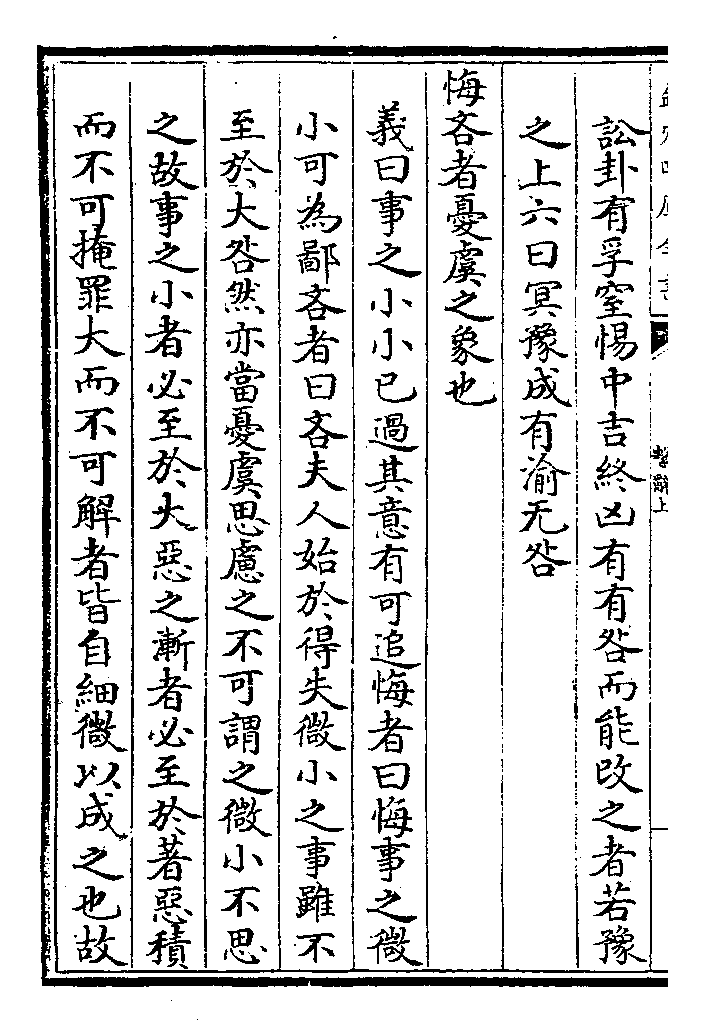 訟卦有孚窒惕中吉終凶有有咎而能改之者若豫
之上六曰冥豫成有渝无咎
悔吝者憂虞之象也
義曰事之小小已過其意有可追悔者曰悔事之微
小可為鄙吝者曰吝夫人始於得失微小之事雖不
至於大咎然亦當憂虞思慮之不可謂之微小不思
之故事之小者必至於大惡之漸者必至於著惡積
而不可掩罪大而不可解者皆自細微以成之也故
繫辭上